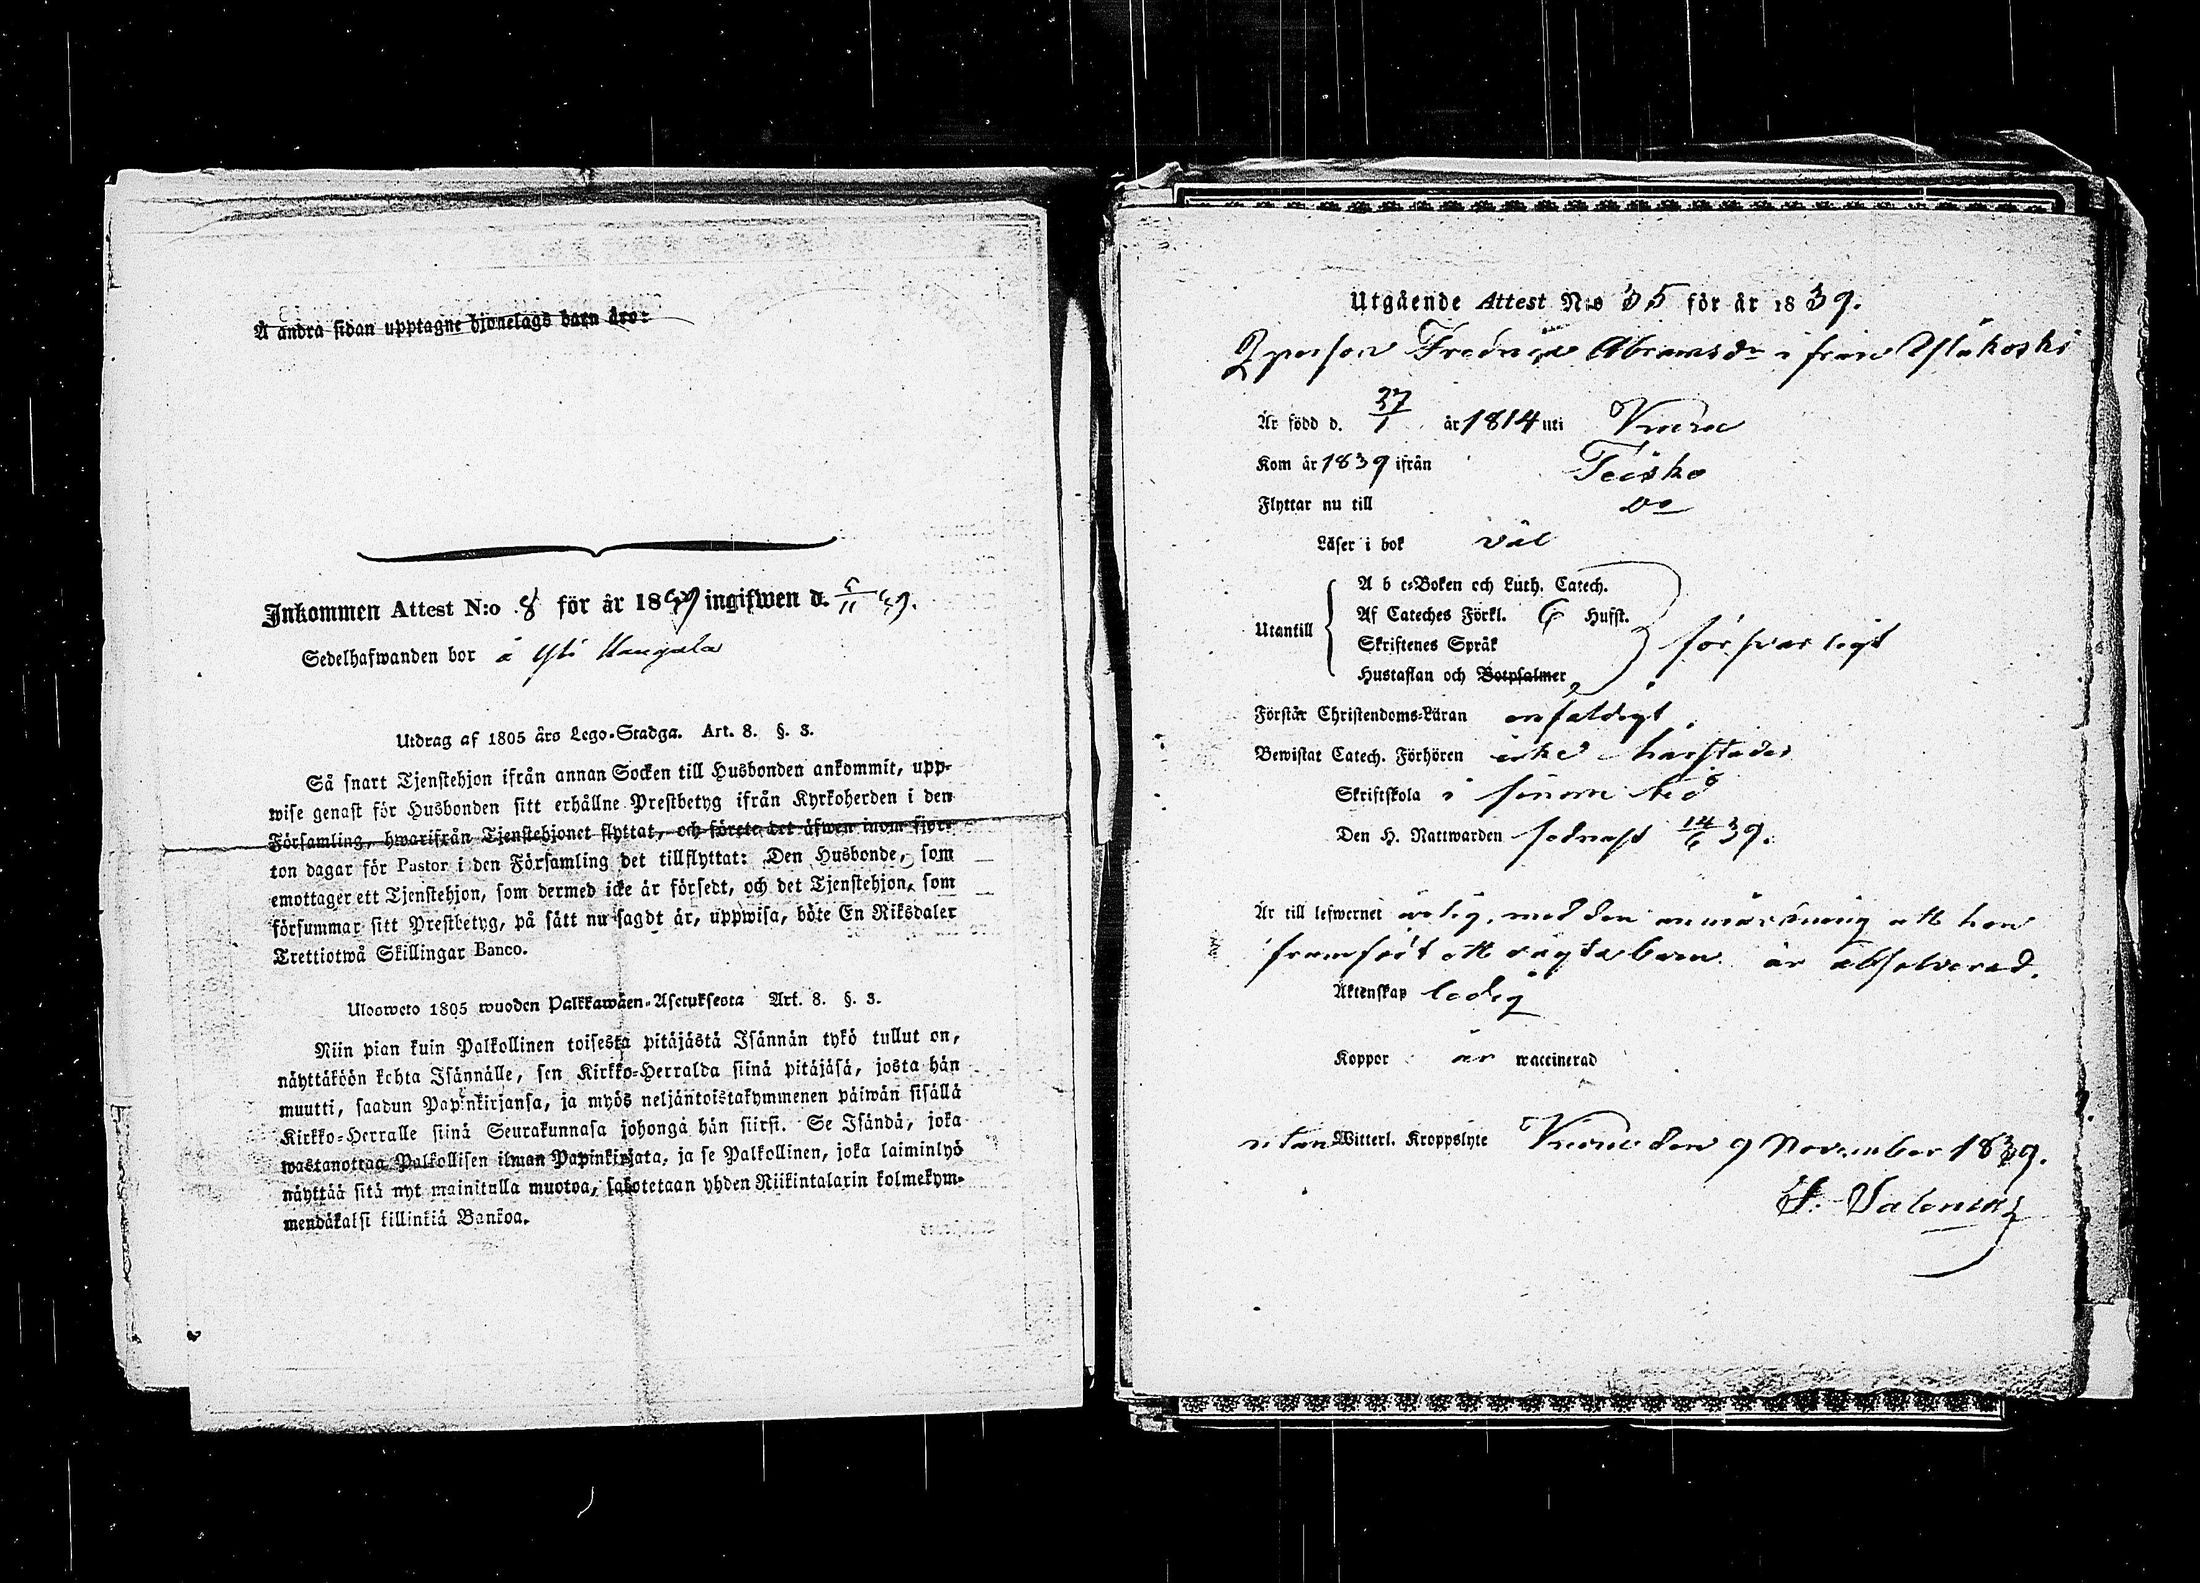 Å andra sidan upptagne hjonelags barn äro:
Inkommen Attest N:o 8 för år 1839 ingifwen d.
Sedelhafwanden bor å Yli Kangala
Utdrag af 1805 års Lego-Stadga. Art. 8. §. 3.
Så snart Tjenstehjon ifrån annan Socken till Husbonden ankommit, upp-
wise genast för Husbonden sitt erhållne Prestbetyg ifrån Kyrkoherden i den
Församling, hwarifrån Tjenstehjonet flyttat, och förete det äfwen inom fjor-
ton dagar för Pastor i den Församling det tillflyttat: Den Husbonde, som
emottager ett Tjenstehjon, som dermed icke är försedt, och det Tjenstehjon, som
försummar sitt Prestbetyg, på sätt nu sagdt är, uppwisa, böte En Riksdaler
Trettiotwå Skillingar Banco.
Ulosweto 1805 wuoden Palkkawäen-Asetuksesta Art. 8. §. 3.
Niin pian kuin Palkollinen toisesta pitäjästä Isännän tykö tullut on,
näyttäköön kohta Isännälle, sen Kirkko-Herralda siinä pitäjäsä, josta hän
muutti, saadun Papinkirjansa, ja myös neljäntoistakymmenen päiwän sisällä
Kirkko-Herralle siinä Seurakunnasa johonga hän siirsi. Se Isändä, joka
wastanottaa Palkollisen ilman Papinkirjata, ja se Palkollinen, joka laiminlyö
näyttää sitä nyt mainitulla muotoa, sakotetaan yhden Riikintalarin kolmekym-
mendäkaksi killinkiä Bankoa.
Utgående Attest N:o 35 för år 1839.
Qperson Fredrica Abramsdr ifrån Yläkoski
Är född d. 27/1 år 1814 uti Kuru
Kom år 1839 ifrån Teisko
Flyttar nu till Do
Läser i bok väl
A b c-Boken och Luth. Catech.
Af Cateches Förkl. 6 Hufst.
Utantill
Skriftenes Språk försvarligt
Hustaflan och Botpsalmer
Förstår Christendoms-Läran enfaldigt
Bewistat Catech. Förhören icke härstädes
Skriftskola i sinom tid
Den H. Nattwarden sednast 14/6 39.
Är till lefwernet ärlig, med den anmärkning att hon
framfödt ett oägta barn är absolverad.
Äktenskap ledig
Koppor är waccinerad
utan Witterl. Kroppslyte Kuru den 9 November 1839.